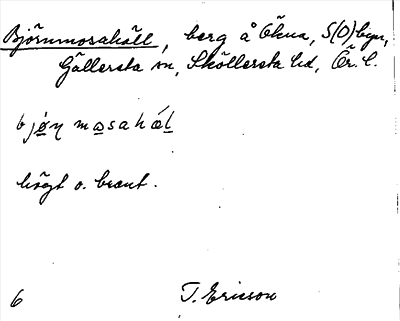 Björnmosahäll, berg å Ökna, S(Ö)byn,
Gällersta sn, Sköllersta hd, Ör. l.
högt o. brant.
6 T. Ericson